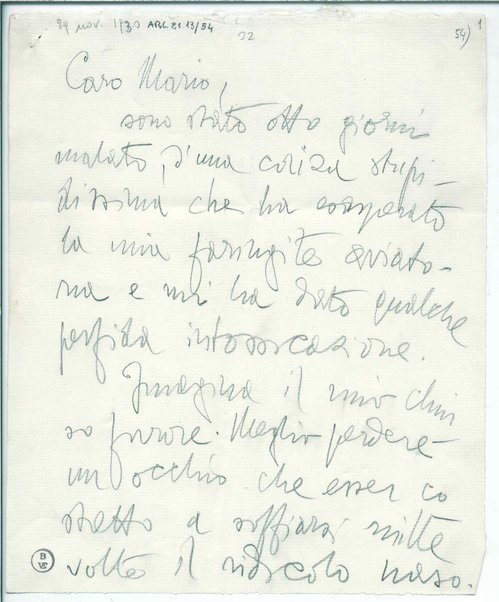 29 nov. 1930 ARC. 21.13/54
22
54) 1
Caro Mario,
sono stato otto giorni
malato, d'una coriza stupi-
dissima che ha esasperato
la mia faringite aviato-
ria e mi ha dato qualche
perfida intossicazione.
Imagina il mio chiu
so furore. Meglio perdere
un occhio che esser co
stretto a soffiarsi mille
volte il ridicolo naso.
B
VS